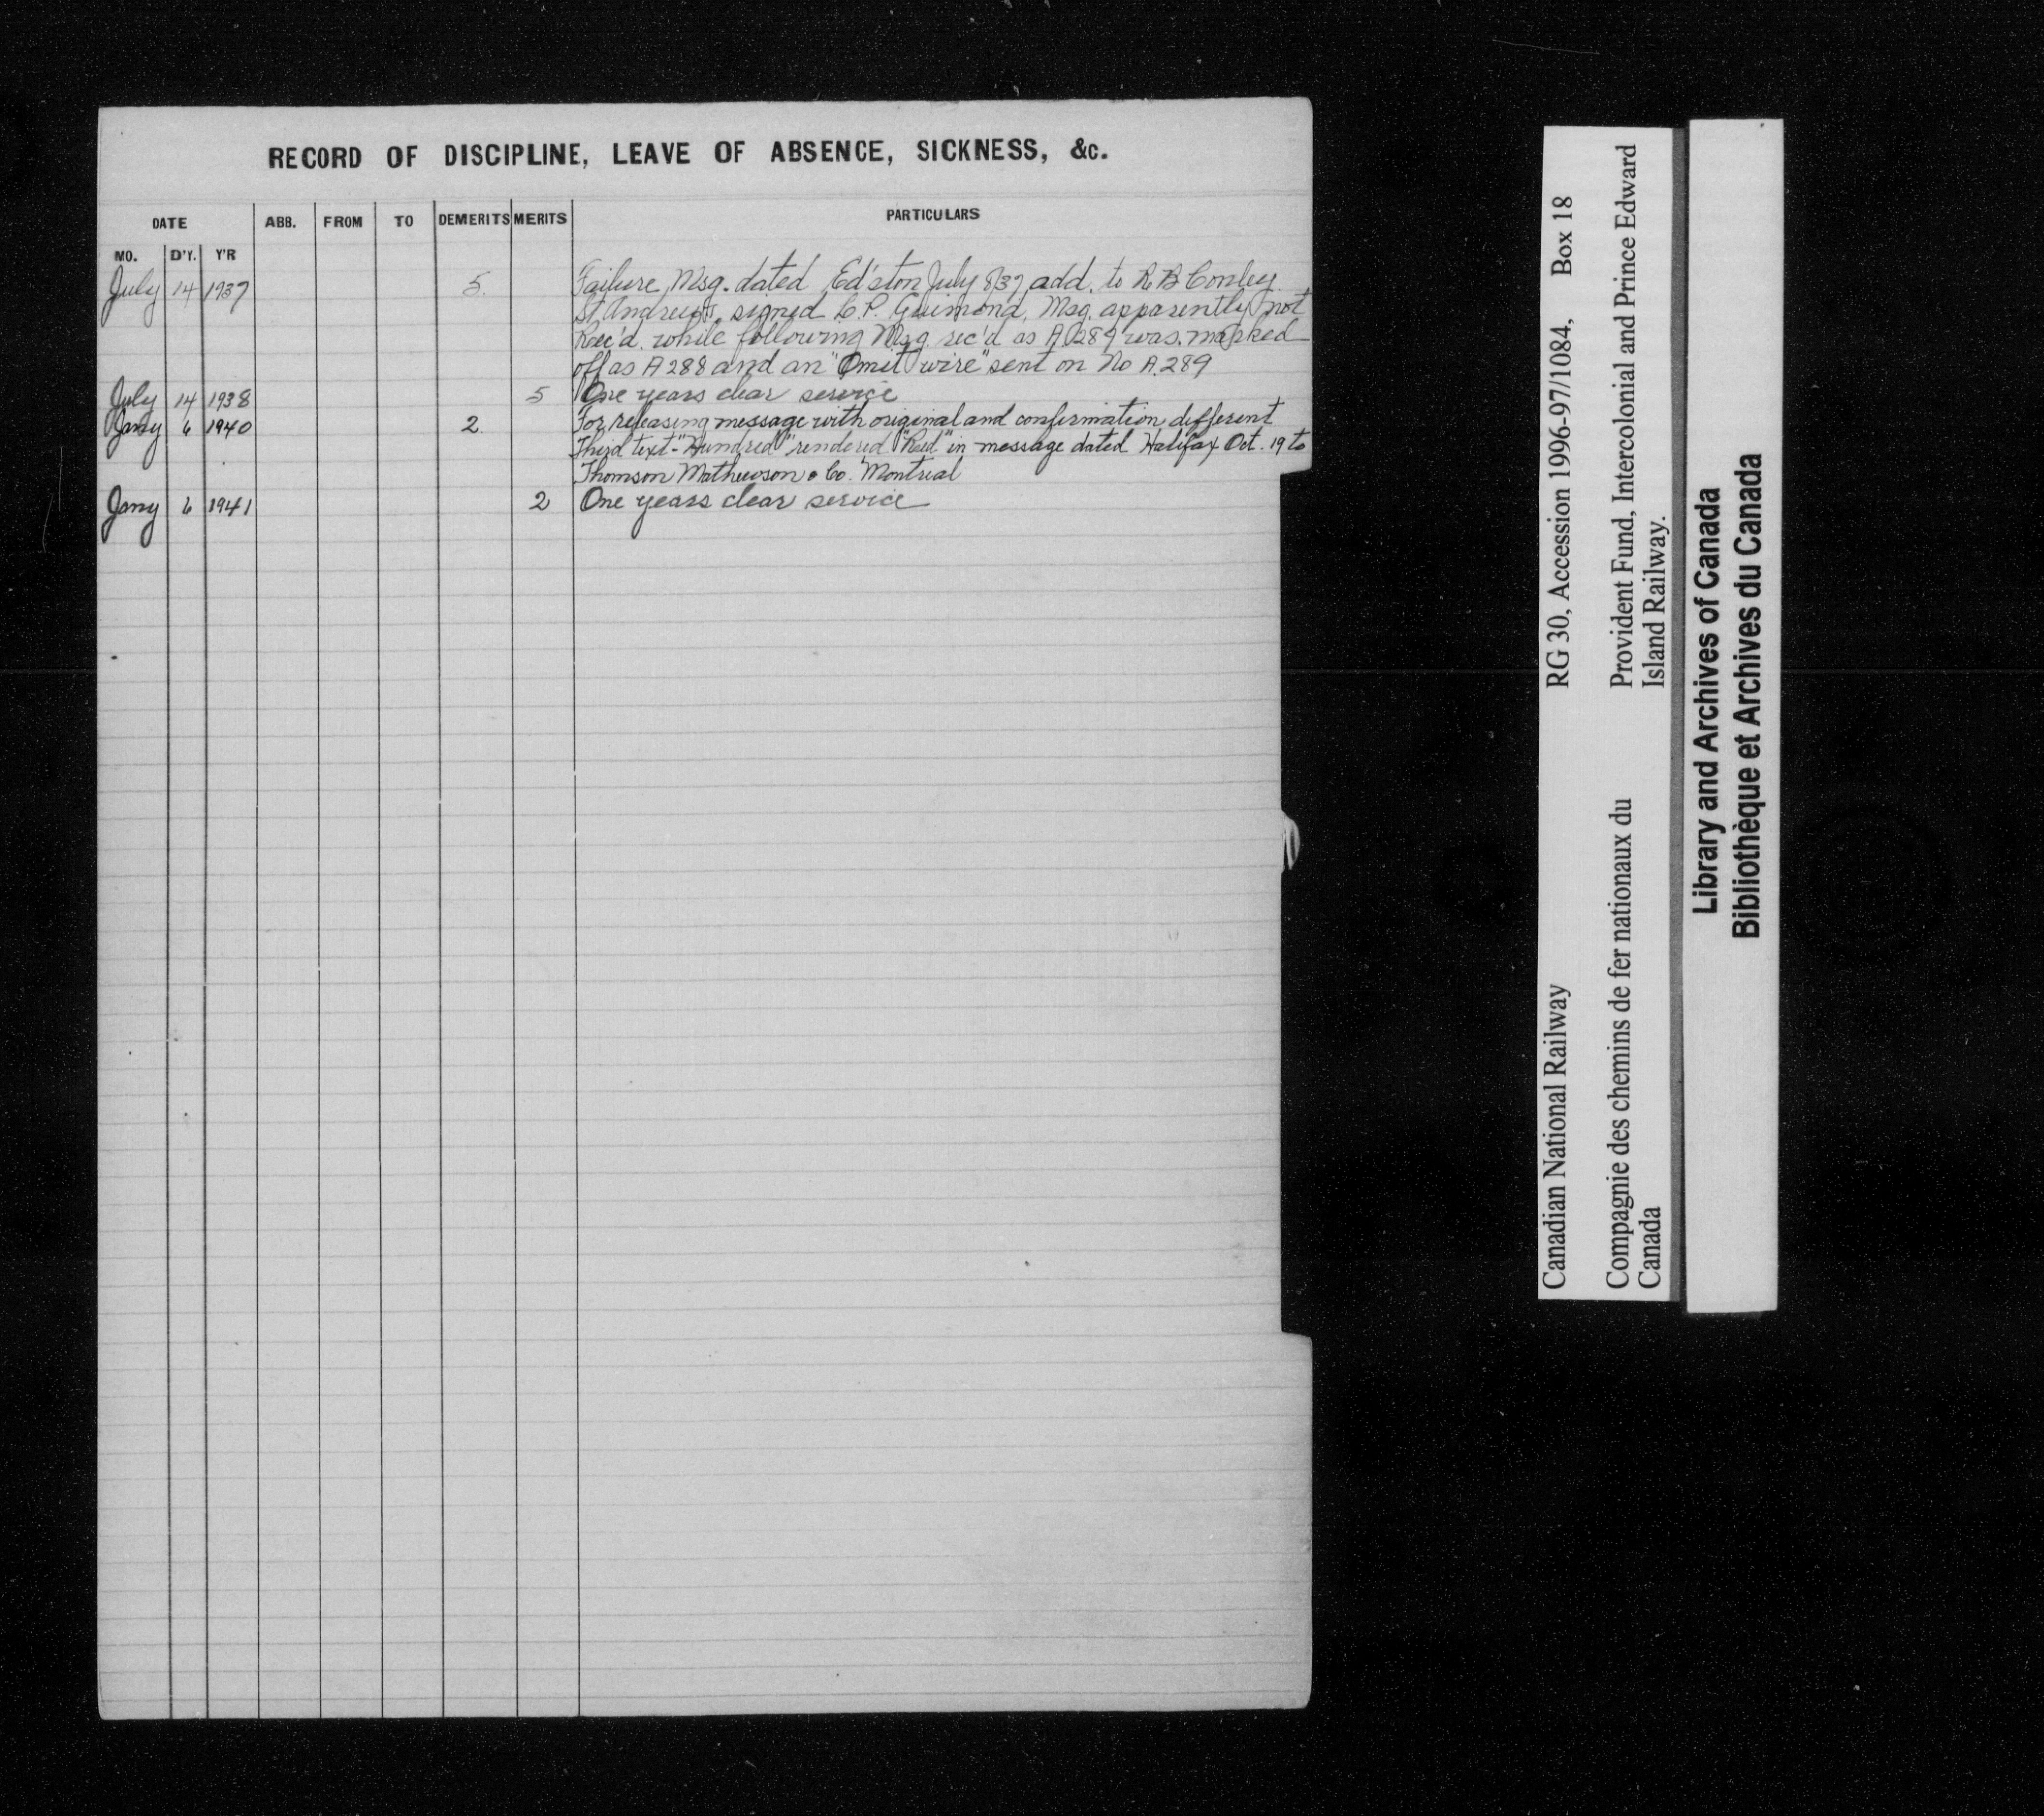 RECORD OF DISCIPLINE, LEAVE OF ABSENCE, SICKNESS, &c.
DATE ABB. FROM TO DEMERITS MERITS PARTICULARS
MO. D'Y. Y'R
July 14 1937 5. Failure, Msg. dated Ed'ston July 8/37 add. to R B Conley
St Andrews, signed C.P. Guimond, Msg. apparently not
Rec'd. while following Msg rec'd as A 289 was marked
off as A 288 and an "Omit wire" sent on No A.289
July 14 1938 5 One years clear service
Jany 6 1940 2. For releasing message with original and confirmation different
Third text - "Hundred" rendered in message dated Halifax Oct. 19 to
Thomson Mathewson & Co. Montreal
Jany 6 1941 2 One years clear service
Canadian National Railway RG 30, Accession 1996-97/1084, Box 18
Compagnie des chemins de fer nationaux du Provident Fund, Intercolonial and Prince Edward
Canada Island Railway.
Library and Archives of Canada
Bibliothèque et Archives du Canada